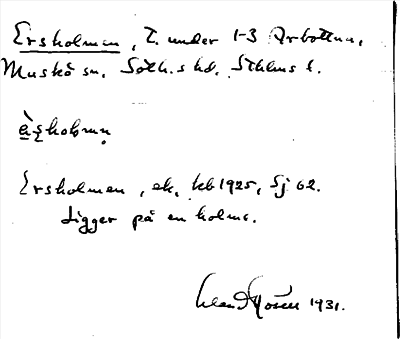 Ersholmen, T. under 1-3 Arbottna,
Muskö sn, Soth.s hd, Sthlms l.
Ersholmen, ek. kb 1925, Sj 62.
Ligger på en holme.
1931.